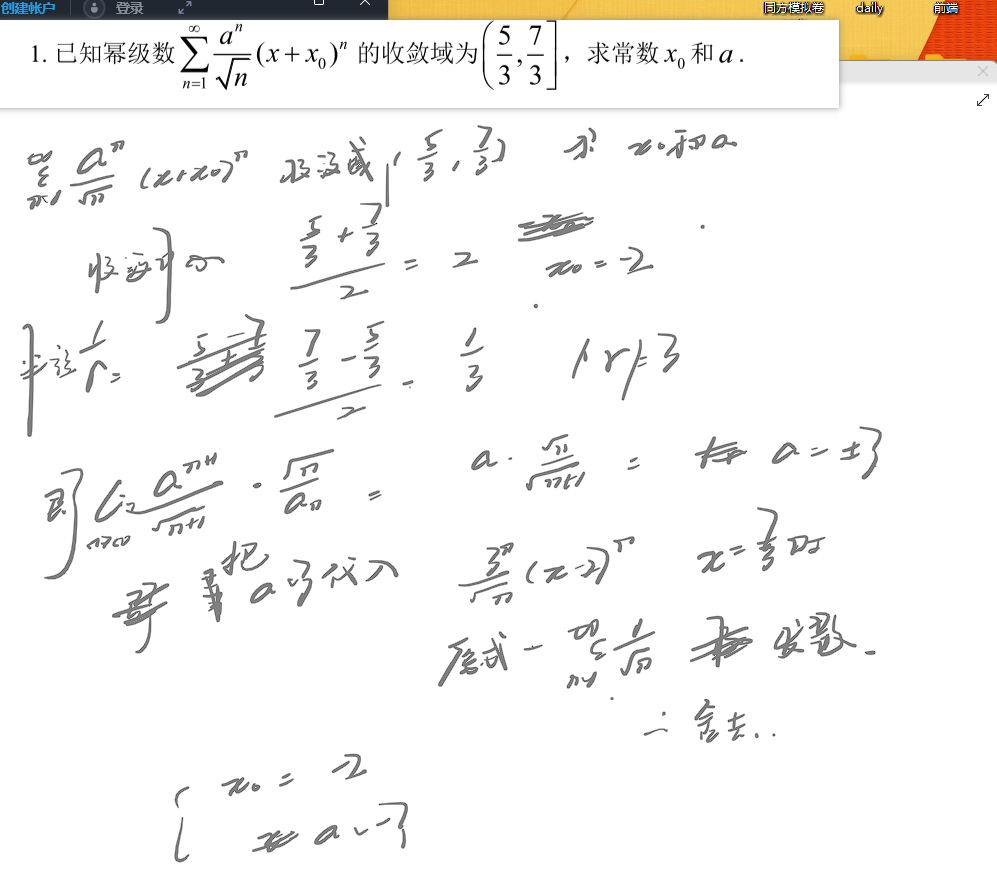 创建帐户 登录 同方模拟卷 daily 前端
1. 已知幂级数 \sum_{n=1}^{\infty} \frac{a^n}{\sqrt{n}} (x+x_0)^n 的收敛域为 \left(\frac{5}{3}, \frac{7}{3}\right], 求常数 x_0 和 a .
\sum_{n=1}^{\infty} \frac{a^n}{\sqrt{n}} (x+x_0)^n 收敛域 (\frac{5}{3}, \frac{7}{3}] 求 x_0 和 a
收敛中心 \frac{\frac{5}{3}+\frac{7}{3}}{2} = 2 x_0 = -2
半径 \frac{1}{r} = \frac{\frac{7}{3}-\frac{5}{3}}{2} = \frac{1}{3} |r| = 3
即 \lim_{n→∞} \frac{a^{n+1}}{\sqrt{n+1}} · \frac{\sqrt{n}}{a^n} = a · \frac{\sqrt{n}}{\sqrt{n+1}} = a = ±3
把 a=3 代入 \frac{3^n}{\sqrt{n}} (x-2)^n x = \frac{7}{3} 时
原式 = \sum_{n=1}^{∞} \frac{1}{\sqrt{n}} 发散.
∴ 舍去..
{ x_0 = -2
a = -3